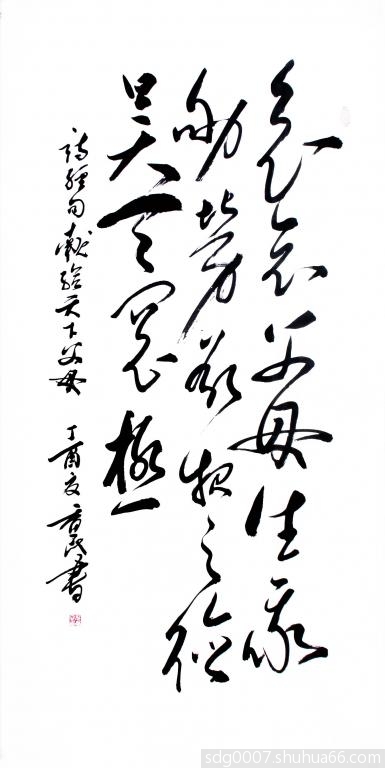 哀哀父母生我
劬勞欲报之德
昊天罔極
诗经句献给天下父母 丁酉夏 民書
sdg0007.shuhua66.com